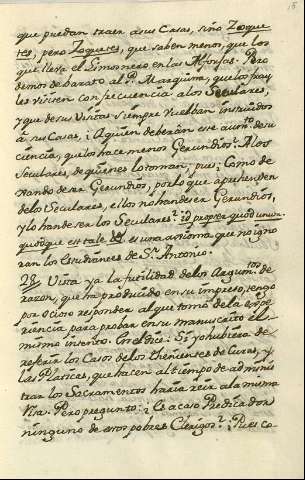 que puedan traer à sus Casas, sino Zoque
tes, pero Zoquetes, que saben menos, que los
que lleva el Limosnero en las Alforjas. Pero
demos de barato al P. Marquina, que los fray
les visiten con frecuencia alos Seculares,
y que de sus Visitas siempre vuelban instruidos
à sus Casas, ¿Aquien deberàn ese aum.to de su
ciencia, que los hace menos Gerundios? Alos
Seculares, de quienes lo toman, pues, Como de
xando de ser Gerundios, por lo que aprehenden
delos Seculares, ellos no han de ser Gerundios,
y lo han de ser los Seculares? id propter quod unum-
quodque est tale es una axioma que no igno
ran los estudiantes de S.n Antonio.
28. Vista ya la futilidad delos Argum.tos de
razon, que ha producido en su impreso, tengo
por ocioso responder al que toma dela expe
riencia para probar en su manuscrito el
mismo intento. Con el dice: Si yo hubiera de
referir los Casos delos thenientes de Curas, y
las Platicas, que hacen al tiempo de adminis
trar los Sacramentos haria reir ala misma
Vita. Pero pregunto: ¿es acaso Predicador
ninguno de esos pobres Clerigos? ¿Pues co